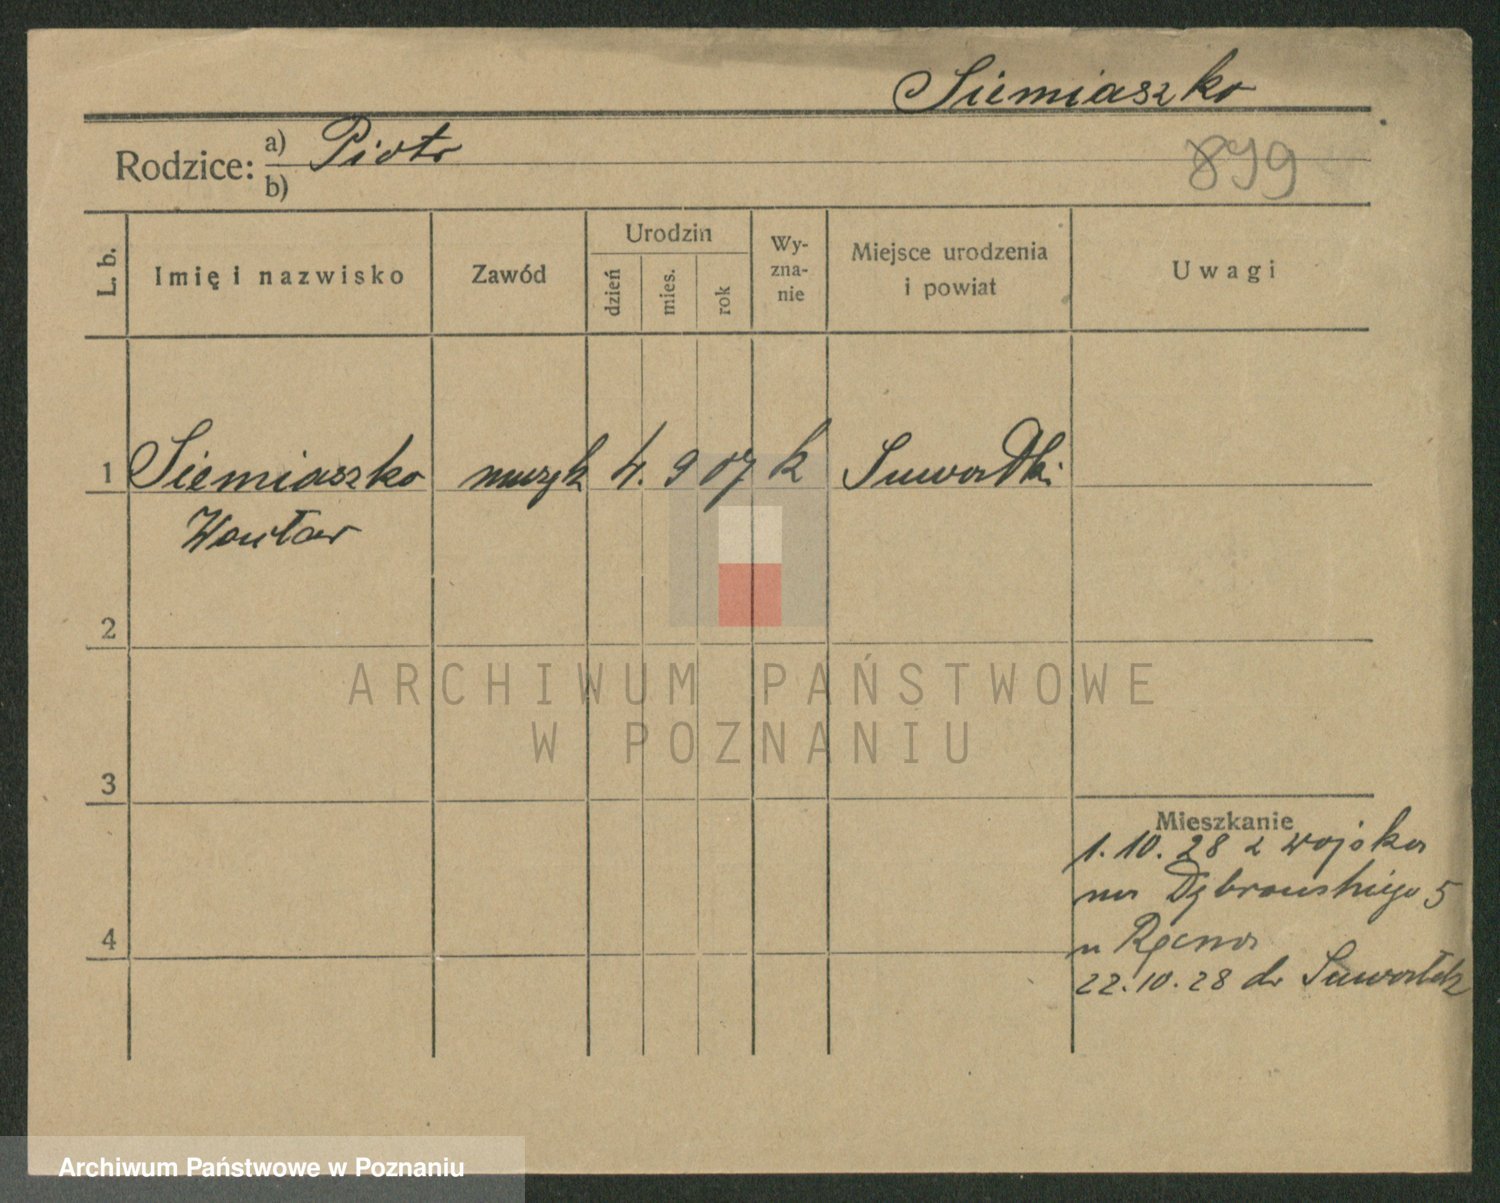 Siemiaszko
Rodzice: a) Piotr
b)
899
L. b.
Imię i nazwisko
Zawód
Urodzin
dzień
mies.
rok
Wy-
zna-
nie
Miejsce urodzenia
i powiat
Uwagi
1 Siemiaszko muzyk 4. 9 07 k Suwałki
Wacław
2
3
4
Mieszkanie
1. 10. 28 z wojska
na Dąbrowskiego 5
u
22. 10. 28 do Suwałk
ARCHIWUM PAŃSTWOWE
W POZNANIU
Archiwum Państwowe w Poznaniu